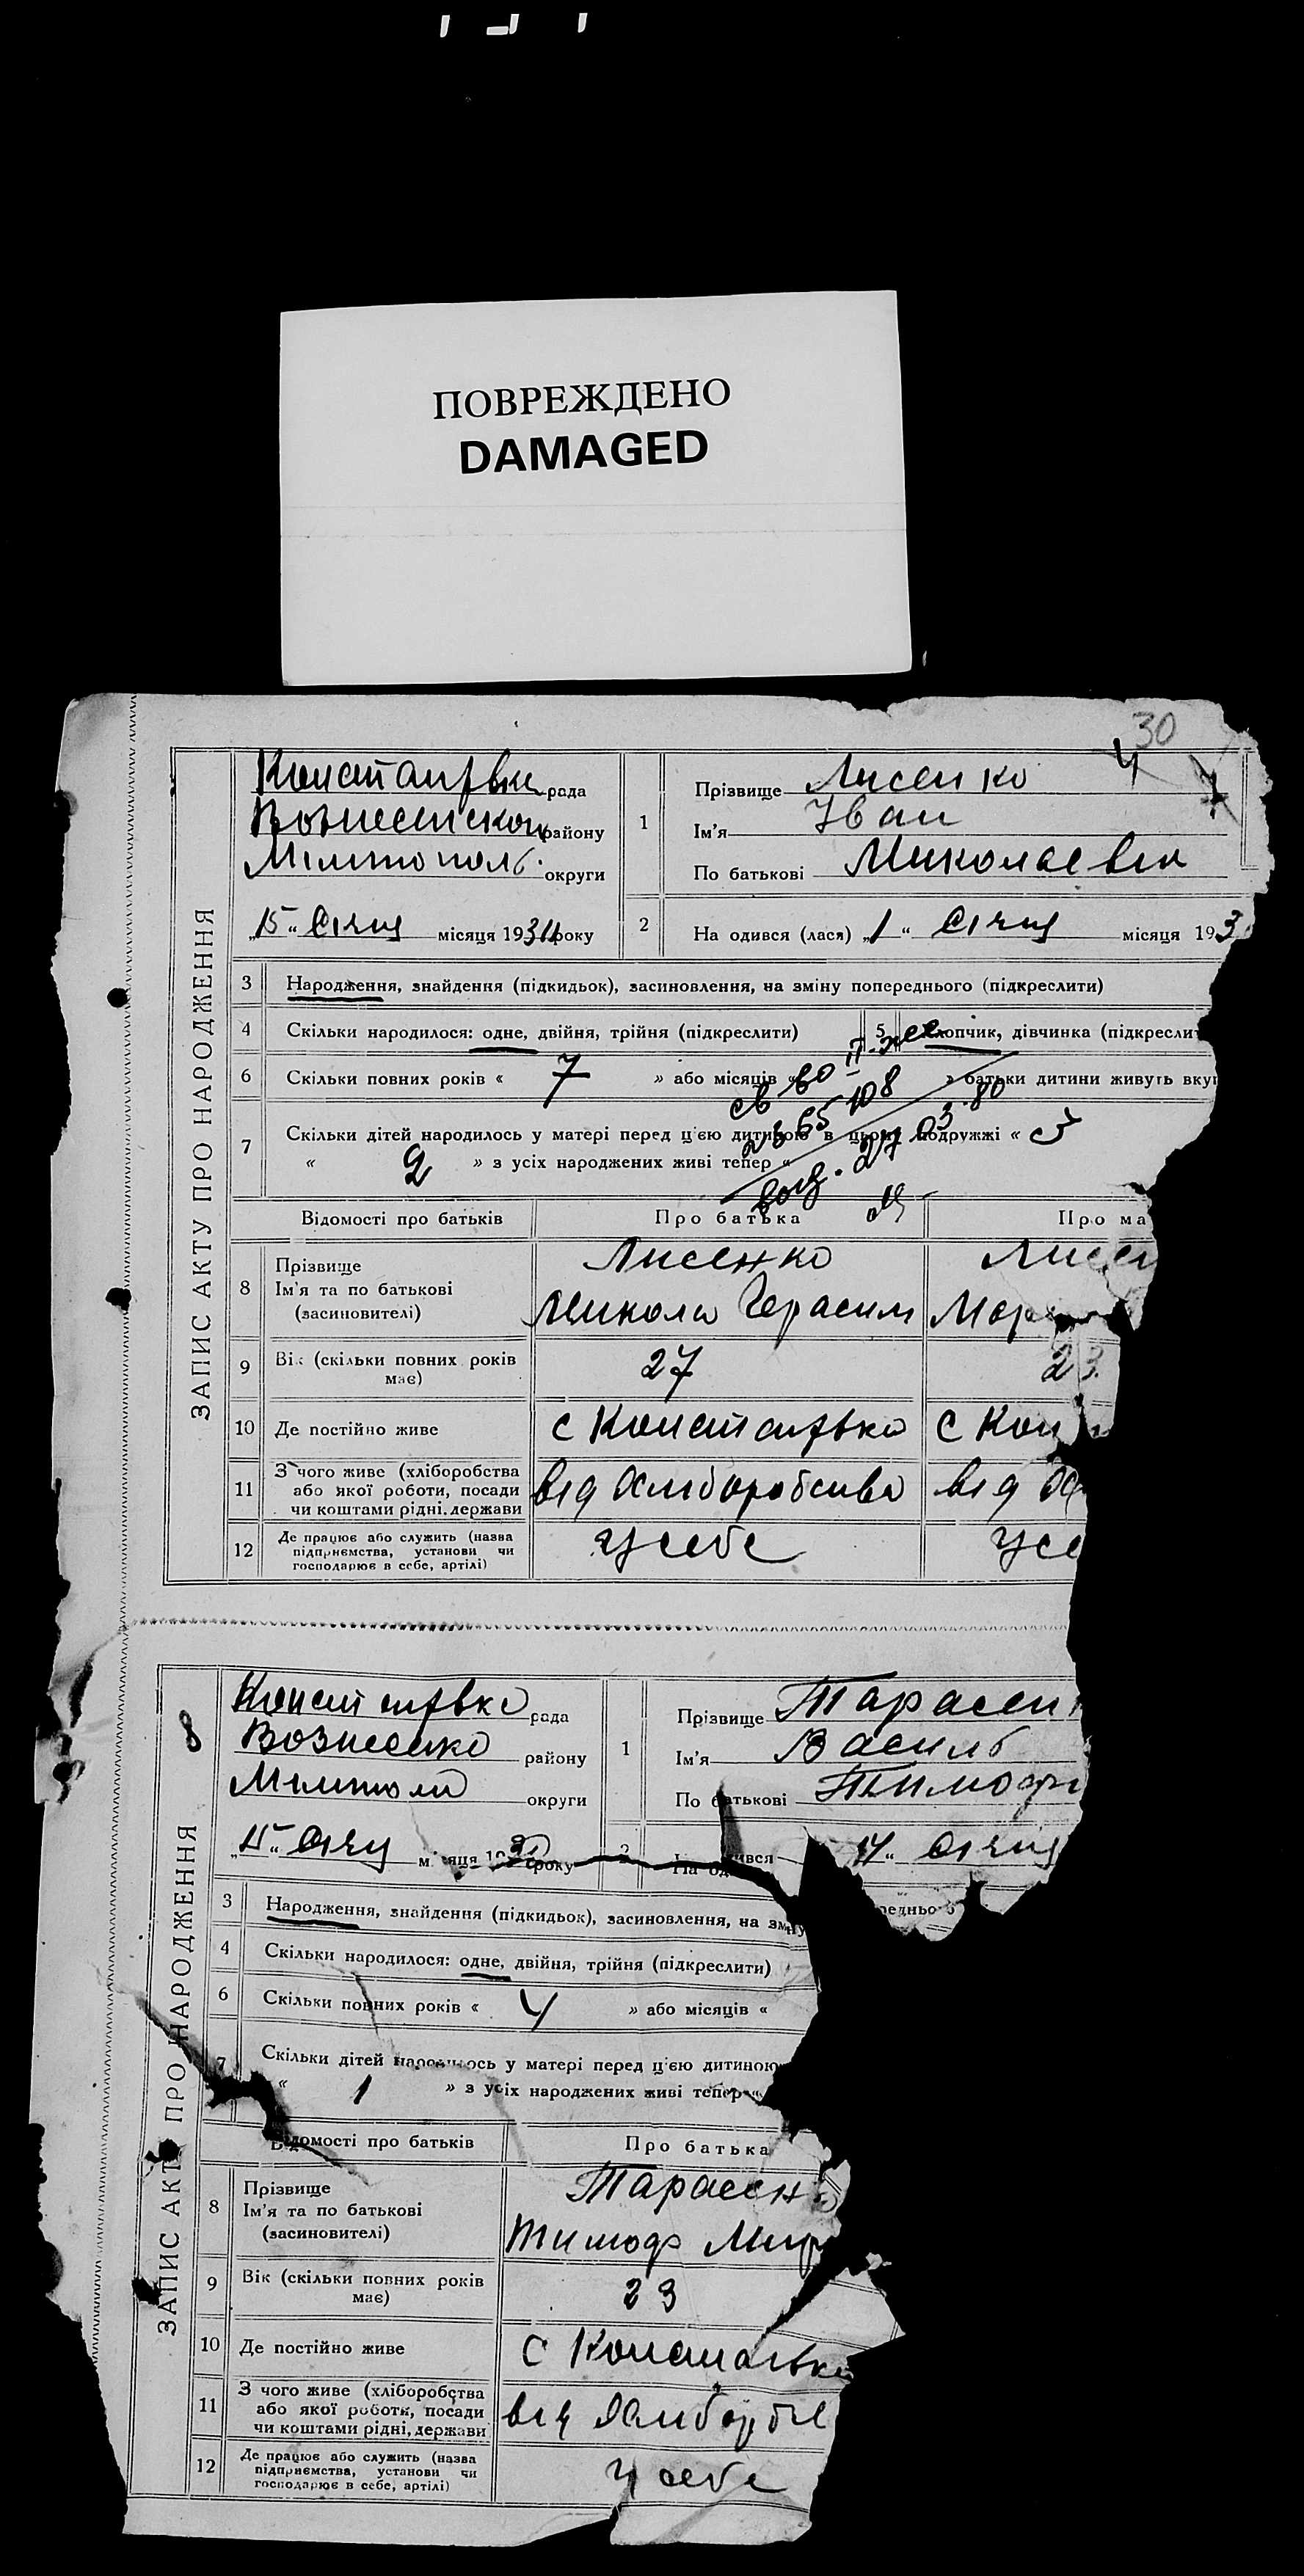 ПОВРЕЖДЕНО
DAMAGED
30
ЗАПИС АКТУ ПРО НАРОДЖЕННЯ
рада
району
округи
„15“ Січня місяця 193 року
1
Прізвище Лисенко
Ім'я Іван
По батькові Миколаєвич
2
На одився (лася) „1“ Січня місяця 193
3 Народження, знайдення (підкидьок), засиновлення, на зміну попереднього (підкреслити)
4 Скільки народилося: одне, двійня, трійня (підкреслити) 5 хлопчик, дівчинка (підкресли
6 Скільки повних років « 7 » або місяців « » батьки дитини живуть вку
7 Скільки дітей народилось у матері перед ц'єю дитиною в цьому подружжі « 3
« 2 » з усіх народжених живі тепер «
Відомості про батьків Про батька Про ма
8 Прізвище Лисенко Лисен
Ім'я та по батькові Микола Герасим Мар
(засиновителі)
9 Вік (скільки повних років має) 27 23
10 Де постійно живе с Константівка с Кон
11 З чого живе (хліборобства або якої роботи, посади чи коштами рідні, держави від Хліборобства від Хл
12 Де працює або служить (назва підприємства, установи чи господарює в себе, артілі) У себе У се
8
ЗАПИС АКТУ ПРО НАРОДЖЕННЯ
рада
району
округи
„15“ Січня місяця 19 року
1
Прізвище Тарасен
Ім'я Василь
По батькові Тимофі
2
На од ився „14“ Січня
3 Народження, знайдення (підкидьок), засиновлення, на зміну редньо
4 Скільки народилося: одне, двійня, трійня (підкреслити)
6 Скільки повних років « 4 » або місяців «
7 Скільки дітей народилось у матері перед ц'єю дитиною
« 1 » з усіх народжених живі тепер «
Відомості про батьків Про батька
8 Прізвище Тарасенко
Ім'я та по батькові Тимоф Мир
(засиновителі)
9 Вік (скільки повних років має) 23
10 Де постійно живе с Константівка
11 З чого живе (хліборобства або якої роботи, посади чи коштами рідні, держави від
12 Де працює або служить (назва підприємства, установи чи господарює в себе, артілі) У себе